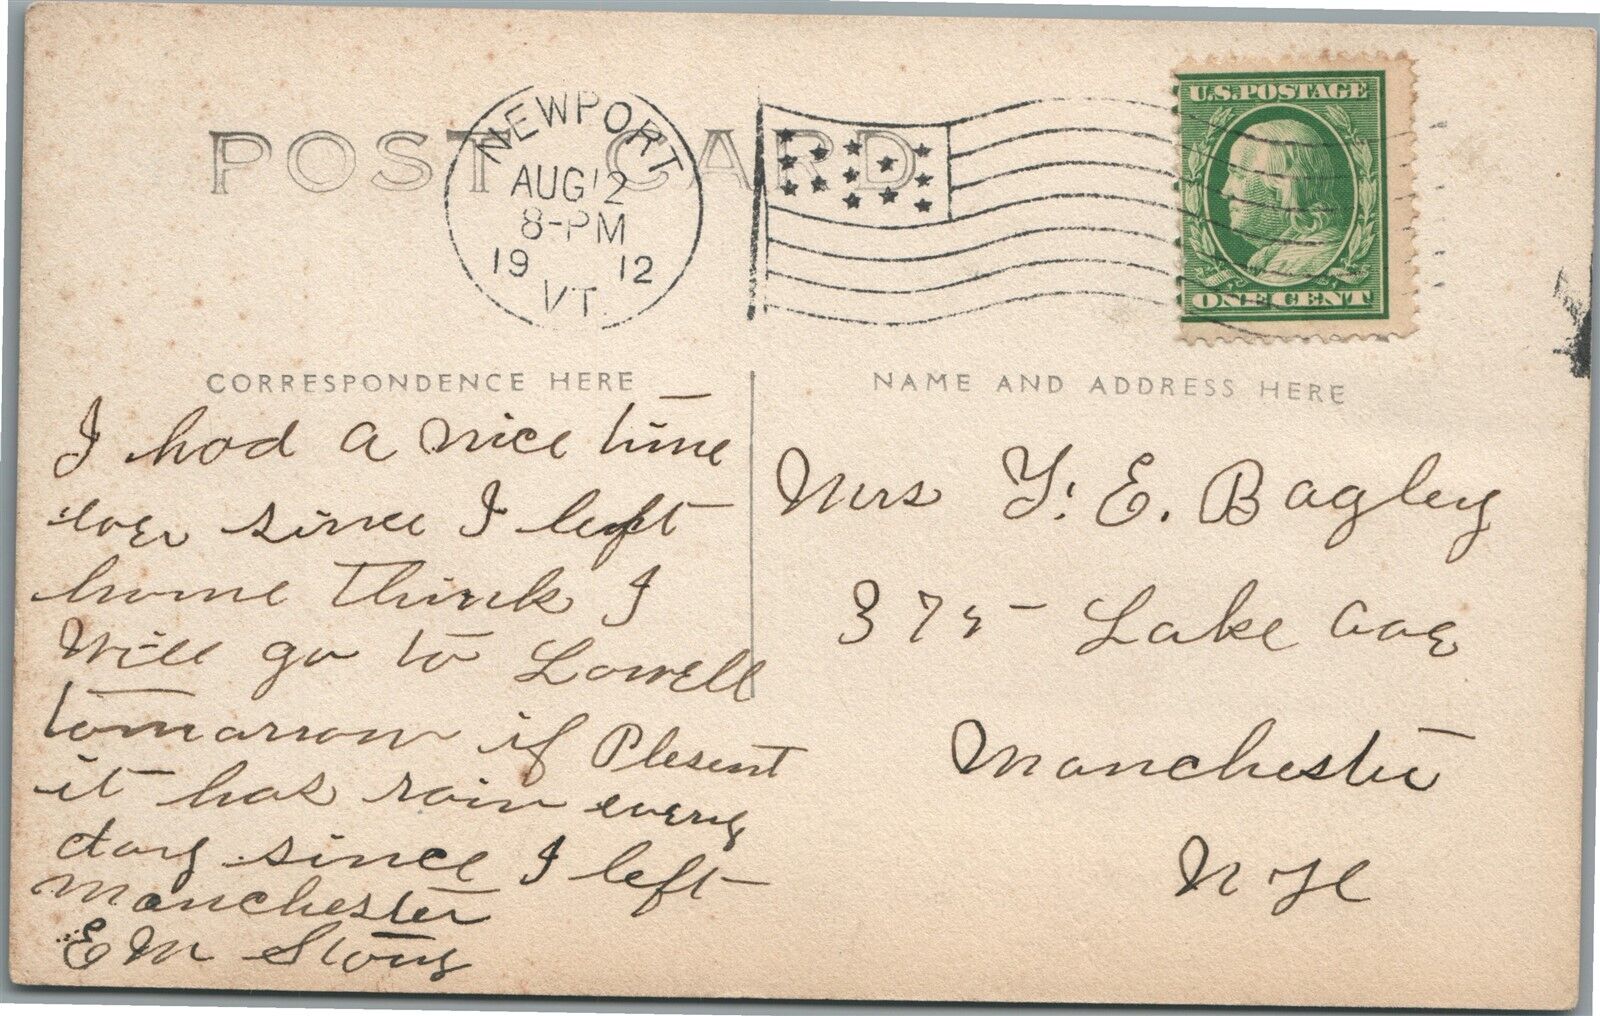 POST CARD
NEWPORT
AUG 12
8-PM
19 12
VT.
U.S. POSTAGE
ONE CENT
CORRESPONDENCE HERE
I had a nice time
ever since I left
home Think I
Will go to Lowell
tomarrow if Plesent
it has rain every
day since I left
Manchester
E M Story
NAME AND ADDRESS HERE
Mrs Y. E. Bagley
375 Lake Ave
Manchester
N H